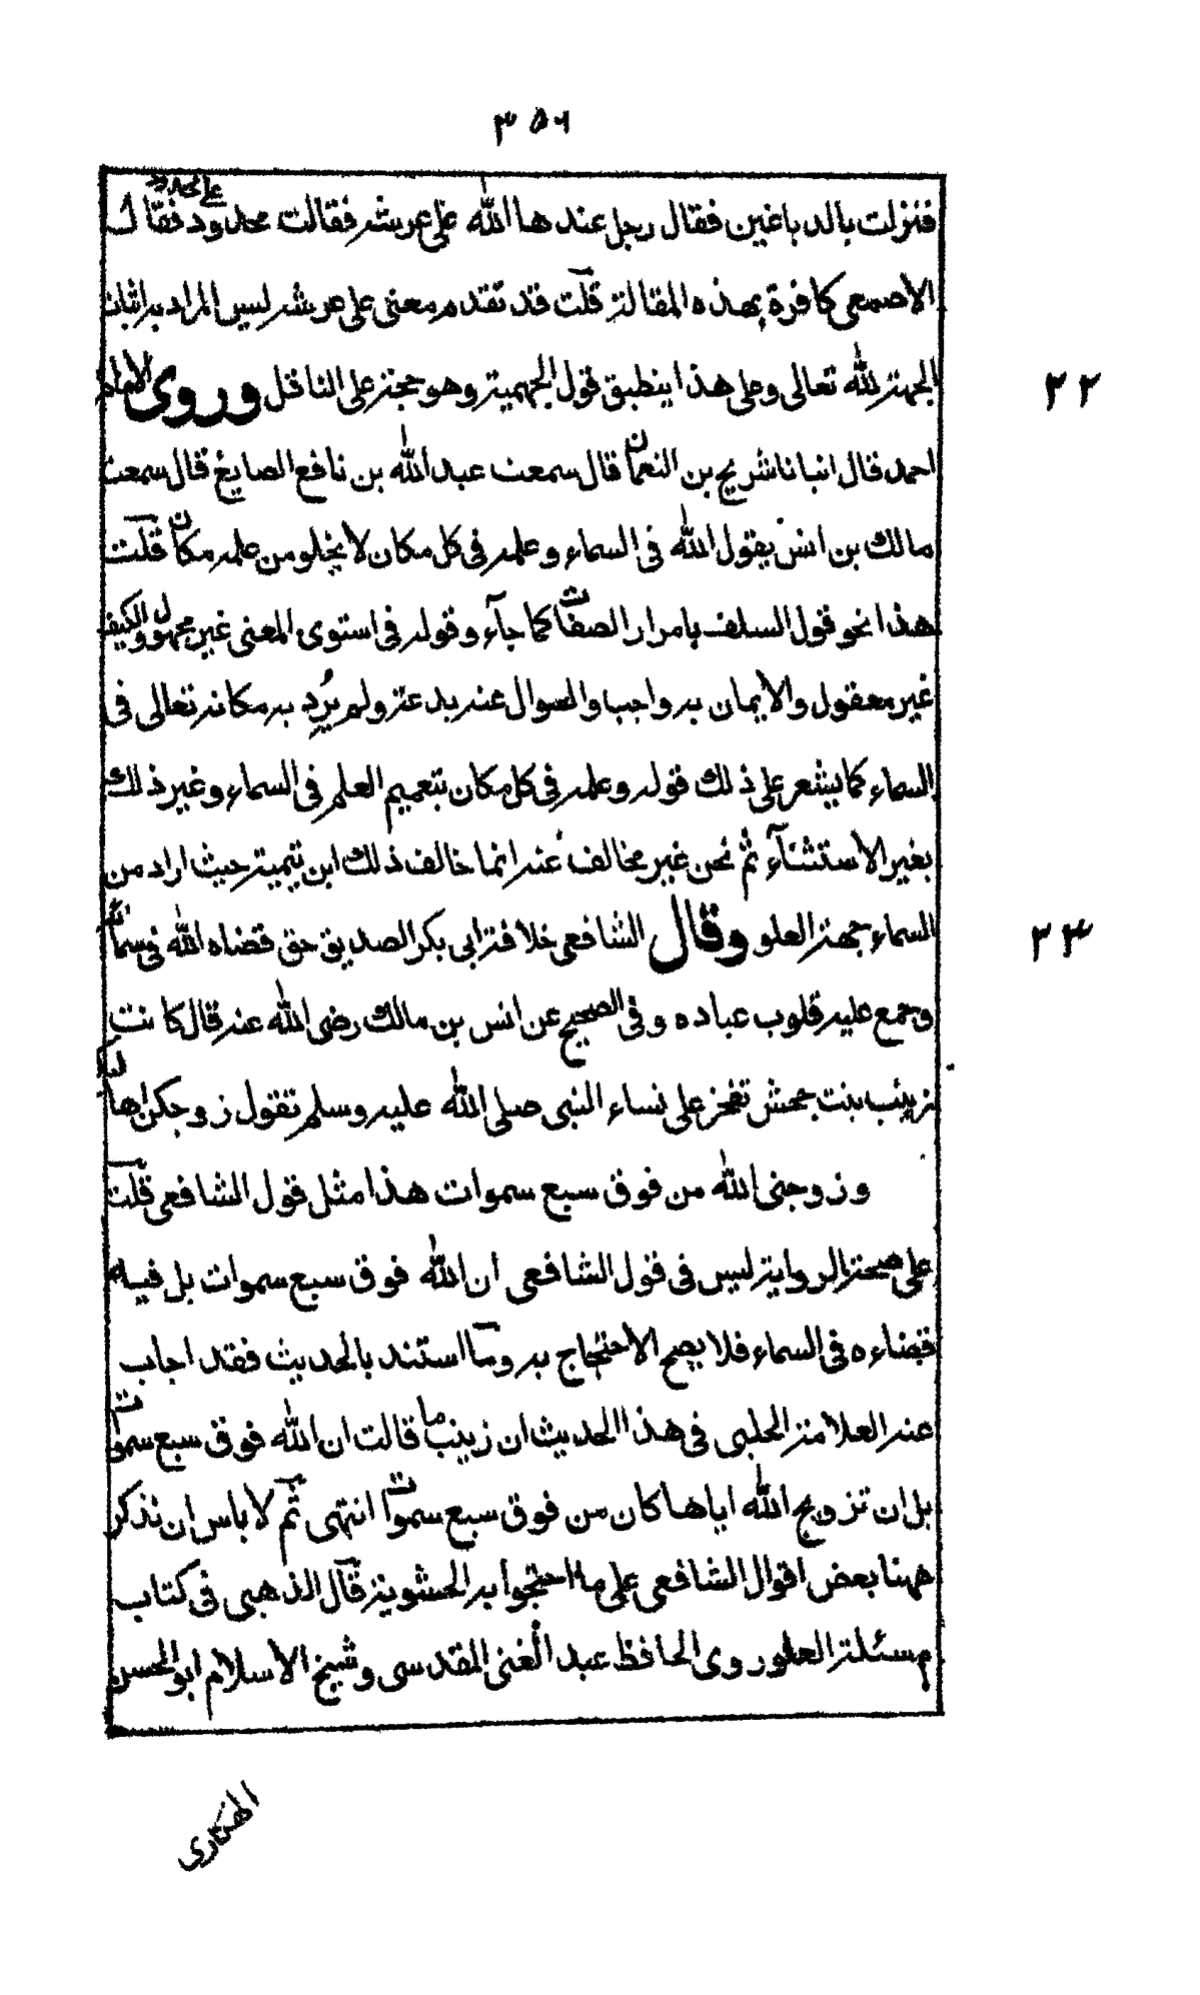 ٣٥٦
فنزلت بالدباغين فقال رجل عندها الله على عرشه فقالت محدود على محدود فقال
الاصمعى كافرة بهذه المقالة قلت قد تقدم معنى على عرشه ليس المراد به اثبات
الجهة لله تعالى وعلى هذا ينطبق قول الجهمية وهو حجة على الناقل وروى الامام
احمد قال انبانا شريح بن النعمان قال سمعت عبد الله بن نافع الصايغ قال سمعت
مالك بن انس يقول الله فى السماء وعلمه فى كل مكان لا يخلو من علمه مكان قلت
هذا نحو قول السلف بامرار الصفات كما جآء وقوله فى استوى المعنى غير مجهول والكيف
غير معقول والايمان به واجب والسوال عنه بدعة ولم يُرِد به مكانه تعالى فى
السماء كما يشعر على ذلك قوله وعلمه فى كل مكان بتعميم العلم فى السماء وغير ذلك
بغير الاستثنآء ثم نحن غير مخالف عنه انما خالف ذلك ابن تيمية حيث اراد من
السماء جهة العلو وقال الشافعى خلافة ابى بكر الصديق حق قضاه الله فى سمائه
وجمع عليه قلوب عباده وفى الصحيح عن انس بن مالك رضى الله عنه قال كانت
زينب بنت جحش تفخر على نساء النبى صلى الله عليه وسلم تقول زوجكن اهاليكن
وزوجنى الله من فوق سبع سموات هذا مثل قول الشافعى قلت
على صحة الرواية ليس فى قول الشافعى ان الله فوق سبع سموات بل فيه
قضاءه فى السماء فلا يصح الاحتجاج به وما استند بالحديث فقد اجاب
عنه العلامة الحلبى فى هذا الحديث ان زينب ما قالت ان الله فوق سبع سموات
بل ان تزويج الله اياها كان من فوق سبع سموات انتهى ثم لا باس ان نذكر
ههنا بعض اقوال الشافعى على ما احتجوا به الحشوية قال الذهبى فى كتاب
مسئلة العلو روى الحافظ عبد الغنى المقدسى وشيخ الاسلام ابو الحسن
الهكارى
٢٢
٢٣